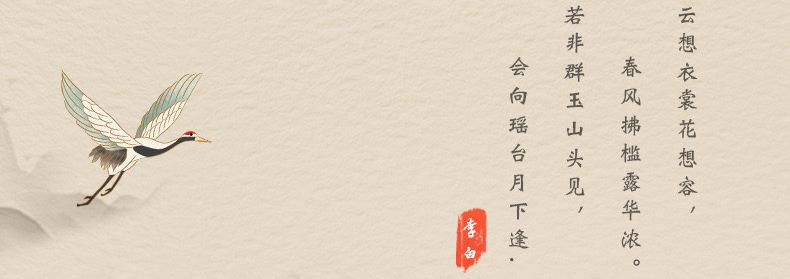 云想衣裳花想容，
春风拂槛露华浓。
若非群玉山头见，
会向瑶台月下逢.
李白